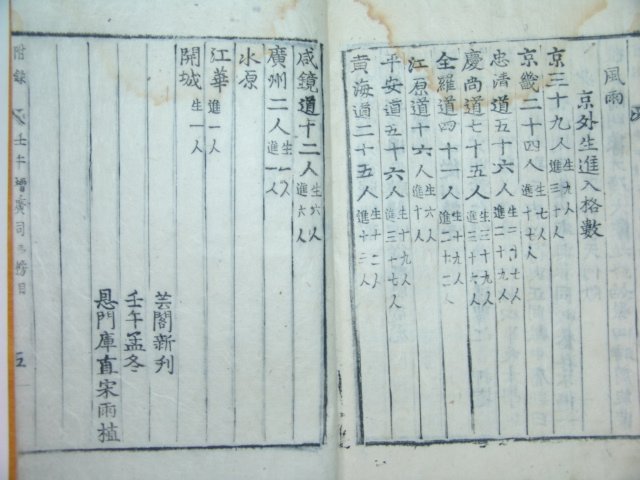 風雨
京外生進入格數
京三十九人 生九人 進三十人
京畿二十四人 生七人 進十七人
忠淸道五十六人 生二十七人 進二十九人
慶尙道七十五人 生三十九人 進三十六人
全羅道四十一人 生十九人 進二十二人
江原道十六人 生六人 進十人
平安道五十六人 生十九人 進三十七人
黃海道二十五人 生十二人 進十三人
咸鏡道十二人 生六人 進六人
廣州二人 生一人 進一人
水原
江華 進一人
開城 生一人
芸閣新刊
壬午孟冬
門庫直宋雨植
附錄 壬午增廣司馬榜目 五